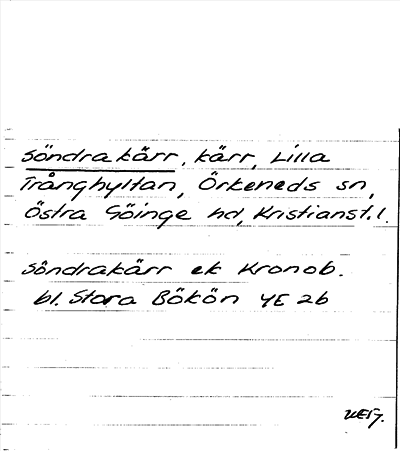 Söndrakärr, kärr, Lilla
Trånghyltan, Örkeneds sn,
Östra Göinge hd, Kristianst.l.
Söndrakärr ek Kronob.
bl. Stora Bökön 4E 2b